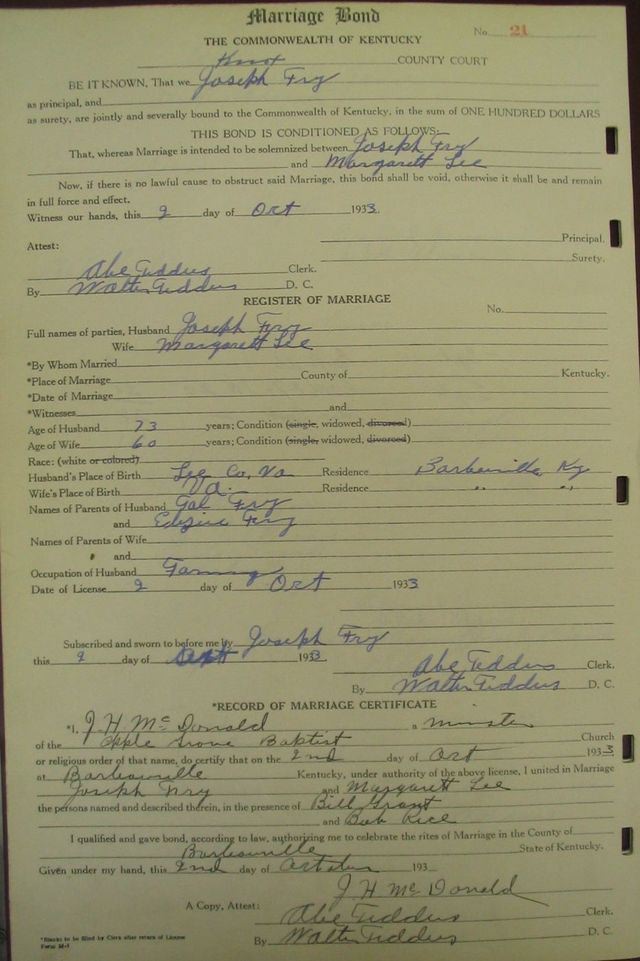 Marriage Bond
No. 21
THE COMMONWEALTH OF KENTUCKY
Knox COUNTY COURT
BE IT KNOWN, That we Joseph Fry
as principal, and
as surety, are jointly and severally bound to the Commonwealth of Kentucky, in the sum of ONE HUNDRED DOLLARS
THIS BOND IS CONDITIONED AS FOLLOWS:
That, whereas Marriage is intended to be solemnized between Joseph Fry
and Margarett Lee
Now, if there is no lawful cause to obstruct said Marriage, this bond shall be void, otherwise it shall be and remain
in full force and effect.
Witness our hands, this 2 day of Oct 1933
Principal.
Attest:
Surety.
Abe Teddus Clerk.
By Walter Teddus D. C.
REGISTER OF MARRIAGE
No.
Full names of parties, Husband Joseph Fry
Wife Margarett Lee
*By Whom Married
*Place of Marriage County of Kentucky.
*Date of Marriage
*Witnesses and
Age of Husband 73 years; Condition (single, widowed, divorced)
Age of Wife 60 years; Condition (single, widowed, divorced)
Race: (white or colored)
Husband's Place of Birth Lee Co, Va Residence Barbourville Ky
Wife's Place of Birth Va. Residence " "
Names of Parents of Husband Gal Fry
and Fry
Names of Parents of Wife
and
Occupation of Husband Farming
Date of License 2 day of Oct 1933
Subscribed and sworn to before me by Joseph Fry
this 2 day of Oct 1933
Abe Teddus Clerk.
By Walter Teddus D. C.
*RECORD OF MARRIAGE CERTIFICATE
*I, J H McDonald a minister
of the Apple Grove Baptist Church
or religious order of that name, do certify that on the 2nd day of Oct 1933
at Barbourville Kentucky, under authority of the above license, I united in Marriage
Joseph Fry and Margarett Lee
the persons named and described therein, in the presence of Bill Grant
and Bob Rice
I qualified and gave bond, according to law, authorizing me to celebrate the rites of Marriage in the County of
Barbourville State of Kentucky.
Given under my hand, this 2nd day of October 193
J H McDonald
A Copy, Attest: Abe Teddus Clerk.
By Walter Teddus D. C.
*Blanks to be filled by Clerk after return of License
Form M-1